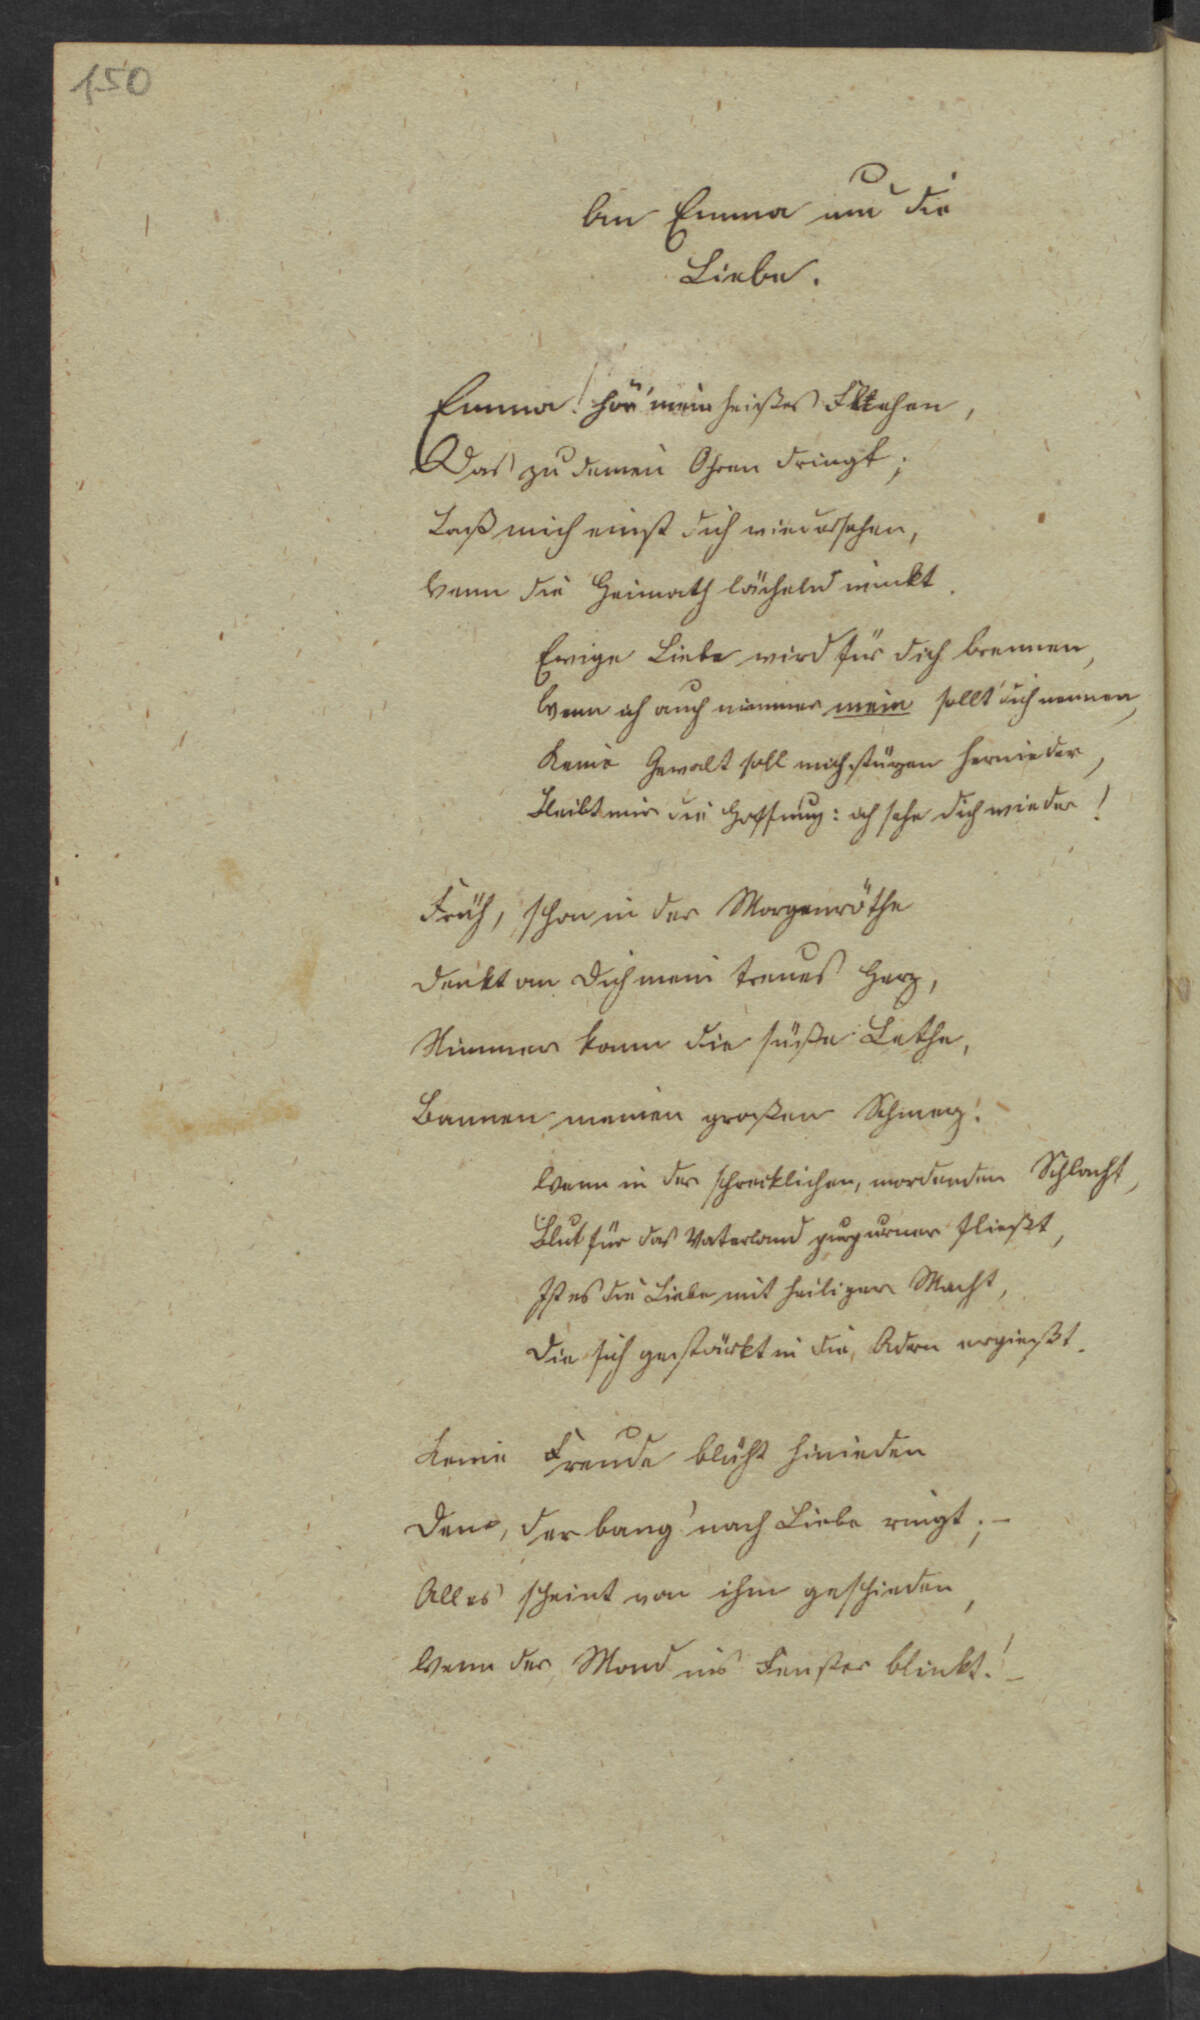 150
An Emma um die
Liebe.
Emma! hör' mein heißes Flehen,
Das zu deinen Ohren dringt;
Laß mich einst dich wiedersehen,
Wenn die Heimath lächelnd winkt.
Ewige Liebe wird für dich brennen,
Wenn ich auch nimmer mein sollt' dich nennen,
Keine Gewalt soll mich stürzen hernieder,
Bleibt mir die Hoffnung: ich sehe dich wieder!
Früh, schon in der Morgenröthe
denkt an Dich mein treues Herz,
Nimmer kann die süße Lethe,
Bannen meinen großen Schmerz.
Wenn in der schrecklichen, mordenden Schlacht,
Blut für das Vaterland purpurner fließt,
Ist es die Liebe mit heiliger Macht,
Die sich gestärkt in die Adern ergießt.
Keine Freude blüht hinieden
Dem, der bang' nach Liebe ringt; -
Alles scheint von ihm geschieden,
Wenn der Mond ins Fenster blinkt! -